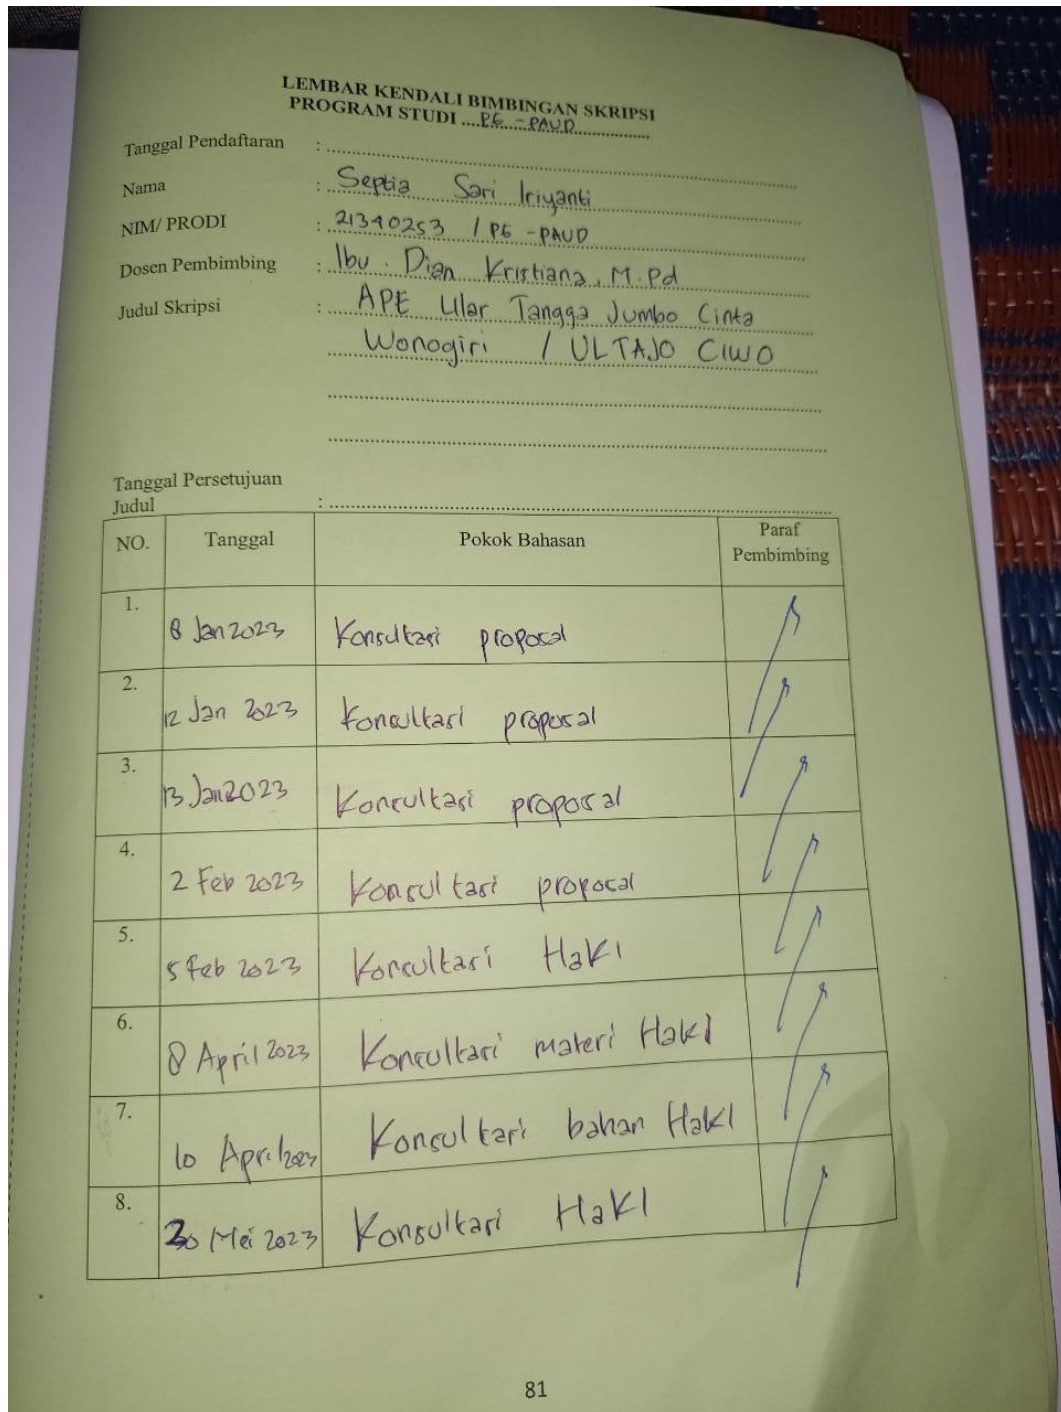 LEMBAR KENDALI BIMBINGAN SKRIPSI
PROGRAM STUDI ....PG-PAUD....................
Tanggal Pendaftaran : ....................
Nama : Septia Sari Iriyanti
NIM/ PRODI : 21340253 / PG-PAUD
Dosen Pembimbing : Ibu. Dian Kristiana, M.Pd
Judul Skripsi : APE Ular Tangga Jumbo Cinta
Wonogiri / ULTAJO CIWO
Tanggal Persetujuan
Judul : ....................
NO. Tanggal Pokok Bahasan Paraf Pembimbing
1. 8 Jan 2023 Konsultasi proposal
2. 12 Jan 2023 Konsultasi proposal
3. 13 Jan 2023 Konsultasi proposal
4. 2 Feb 2023 Konsultasi proposal
5. 5 Feb 2023 Konsultasi HaKI
6. 8 April 2023 Konsultasi materi HaKI
7. 10 April 2023 Konsultasi bahan HaKI
8. 30 Mei 2023 Konsultasi HaKI
81